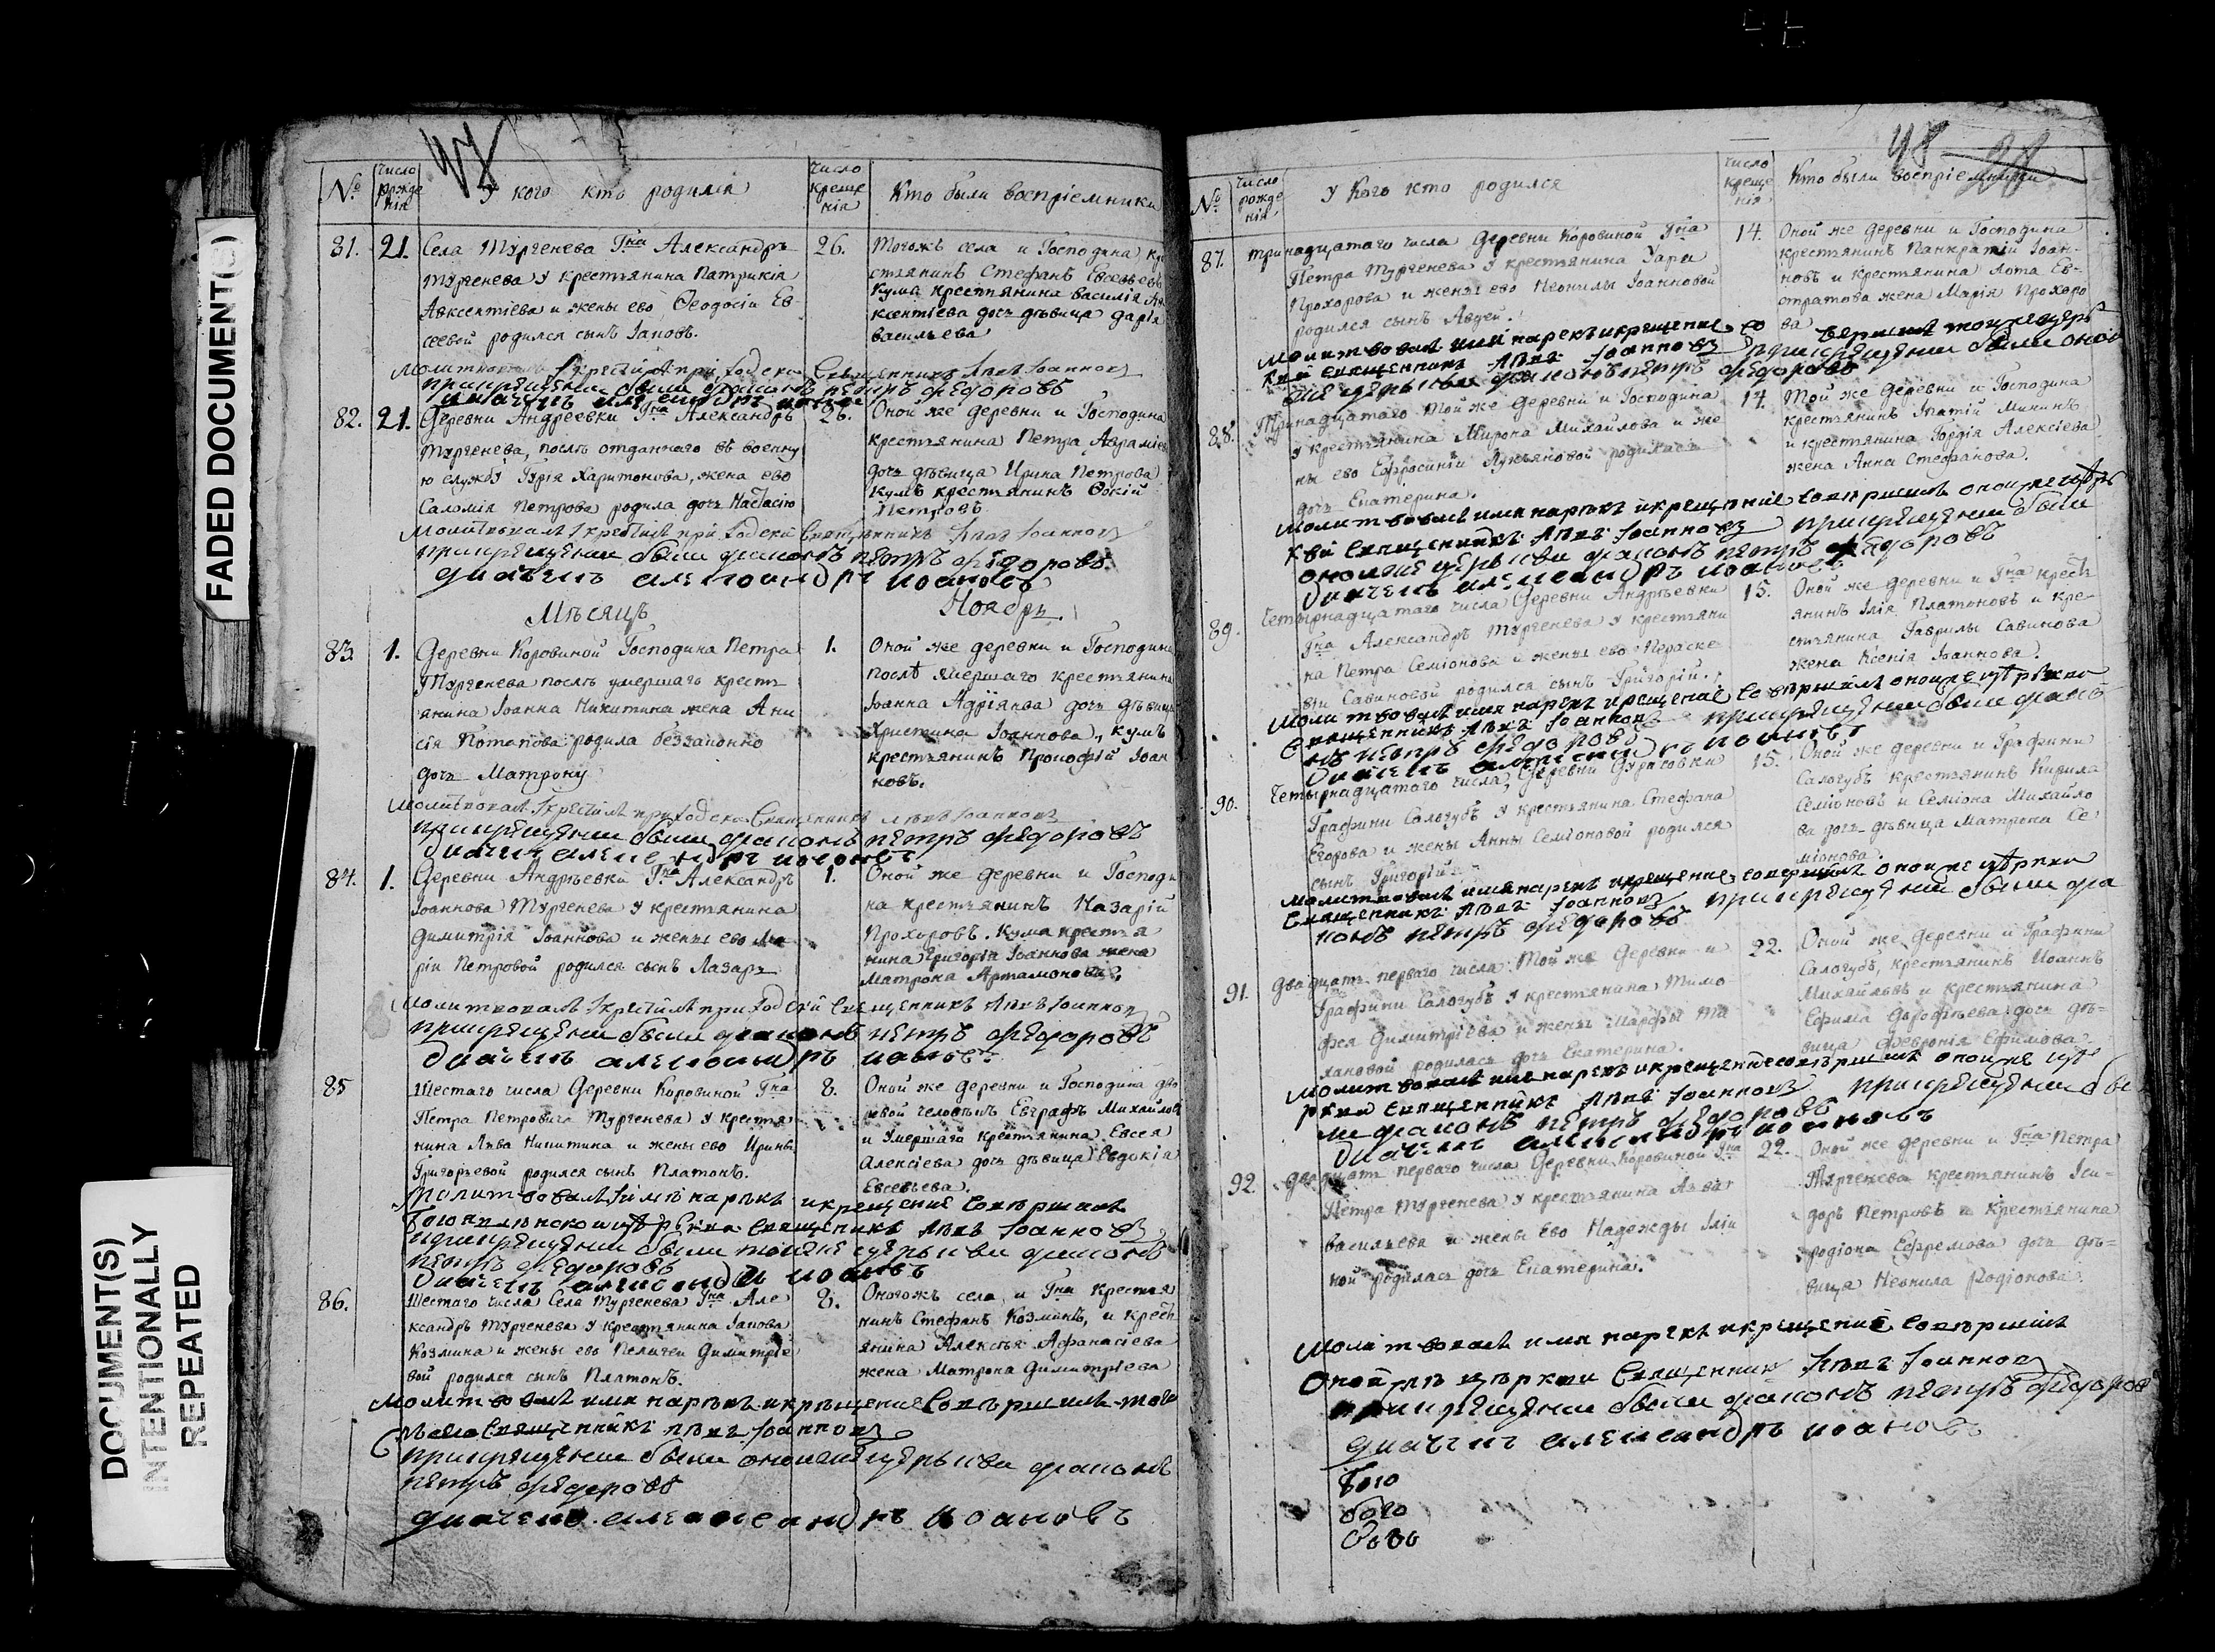 FADED DOCUMENT(S)
DOCUMENT(S)
INTENTIONALLY
REPEATED
47
№
число рожде нія
У кого кто родился
число креще нія
Кто были воспріемники
81.
21.
Села Тургенева Г:на Александръ
Тургенева у крестьянина Патрикіа
Авксентіева и жены ево Ѳеодосіи Ев
сеевой родился сынъ Іаковъ.
26.
Тогожъ села и Господина кре
стьянинъ Стефанъ Евсевьевъ
Кума крестьянина василія Ав
ксентіева дочь дѣвица дарія
васильева
Молитвовалъ и крестилъ приходской Священникъ Левъ Іоанновъ
при крещении были диаконъ петръ федоровъ
82.
21.
Деревни Андреевки Г:на Александръ
Тургенева, послѣ отданнаго въ военну
ю службу Гурія Харитонова, жена ево
Саломія Петрова родила дочь Настасію
26.
Оной же деревни и Господина
крестьянина Петра Авраміева
дочь дѣвица Ирина Петрова
Кумъ крестьянинъ Ѳокій
Петровъ
Молитвовалъ и крестилъ приходской Священникъ Левъ Іоанновъ
при крещении были диаконъ петръ федоровъ
диачекъ александръ иоановъ
Мѣсяцъ
Ноябрь.
83.
1.
Деревни Коровиной Господина Петра
Тургенева послѣ умершаго кресть
янина Іоанна Никитина жена Ани
сія Потапова родила беззаконно
дочь Матрону
1.
Оной же деревни и Господина
послѣ умершаго крестьянина
Іоанна Адріянва дочь дѣвица
Христина Іоаннова, кумъ
крестьянинъ Прокофій Іоан
новъ.
Молитвовалъ и крестилъ приходской Священникъ Левъ Іоанновъ
при крещении были диаконъ петръ федоровъ
диачекъ александръ иоановъ
84.
1.
Деревни Андрѣевки Г:на Александръ
Іоаннова Тургенева у крестьянина
Димитрія Іоаннова и жены ево Ма
ріи Петровой родился сынъ Лазарь
1.
Оной же деревни и Господи
на крестьянинъ Назарій
Прохоровъ. Кума крестья
нина Григорія Іоаннова жена
Матрона Артамонова.
Молитвовалъ и крестилъ приходской Священникъ Левъ Іоанновъ
при крещении были диаконъ петръ федоровъ
диачекъ александръ иоановъ
85
Шестаго числа Деревни Коровиной Г:на
Петра Петровича Тургенева у крестья
нина Льва Никитина и жены ево Ирины
Григорьевой родился сынъ Платонъ.
8.
Оной же деревни и Господина дво
ровой человѣкъ Евграфъ Михайловъ
и умершаго крестьянина Евсея
Алексіева дочь дѣвица Евдокіа
Евсевьева.
Молитвовалъ имя нарекъ и крещение совершилъ
церкви Священникъ Левъ Іоанновъ
при крещении были тоя же церькви диаконъ
петръ федоровъ
диачекъ александръ иоановъ
86.
Шестаго числа Села Тургенева Г:на Але
ксандръ Тургенева у крестьянина Іакова
Козмина и жены ево Пелагеи Димитріе
вой родился сынъ Платонъ.
8.
Оногожъ села и Г:на крестья
нинъ Стефанъ Козминъ, и кресть
янина Алексѣя Афанасіева
жена Матрона Димитріева
Молитвовалъ имя нарекъ и крещение Совершилъ того
Села Священникъ Левъ Іоанновъ
при крещении были оной же церькви диаконъ
петръ федоровъ
диачекъ александръ иоановъ
48
№
число рожде нія
У Кого кто родился
число креще нія
Кто были воспріемники
87.
тринадцатаго числа Деревни Коровиной Г:на
Петра Тургенева у крестьянина Уара
Прохорова и жены ево Неонилы Іоанновой
родился сынъ Авдей.
14.
Оной же деревни и Господина
крестьянинъ Панкратій Іоан-
новъ и крестьянина Лота Ев-
стратова жена Марія Прохоро
ва
Молитвовалъ имя нарекъ и крещение совершилъ тои же церь
кви Священникъ Левъ Іоанновъ при крещении были оной
же церькви диаконъ петръ федоровъ
88.
Тринадцатаго той же деревни и Господина
у крестьянина Мирона Михайлова и же
ны ево Ефросиніи Лукьяновой родилась
дочь Екатерина.
14.
Той же деревни и Господина
крестьянинъ Ипатій Мининъ
и крестьянина Гордія Алексіева
жена Анна Стефанова.
Молитвовалъ имя нарекъ и крещение Совершилъ оной же церь
кви Священникъ Левъ Іоанновъ при крещении были
оной же церькви диаконъ петръ федоровъ
диачекъ александръ иоановъ
89.
Четырнадцатаго числа Деревни Андрѣевки
Г:на Александръ Тургенева у крестьяни
на Петра Семіонова и жены ево Параске
віи Савиновой родился сынъ Григорій.
15.
Оной же деревни и Г:на кресть
янинъ Ілія Платоновъ и кре-
стьянина Гаврилы Савинова
жена Ксенія Іоаннова.
Молитвовалъ имя нарекъ и крещение Совершилъ оной же церькви
Священникъ Левъ Іоанновъ при крещении были диако
нъ петръ федоровъ
диачекъ александръ иоановъ
90.
Четырнадцатаго числа, Деревни Дурасовки
Графини Салогубъ у крестьянина Стефана
Егорова и жены Анны Семіоновой родился
сынъ Григорій
15.
Оной же деревни и Графини
Салогубъ крестьянинъ Кирила
Семіоновъ и Семіона Михайло
ва дочь дѣвица Матрона Се
міонова.
Молитвовалъ имя нарекъ и крещение совершилъ оной же церькви
Священникъ Левъ Іоанновъ при крещении были диа
конъ петръ федоровъ
91.
Двадцать перваго числа Той же Деревни и
Графини Салогубъ у крестьянина Тимо
фея Димитріева и жены Марфы Ма
лановой родилась дочь Екатерина.
22.
Оной же деревни и Графини
Салогубъ, крестьянинъ Иоаннъ
Михайловъ и крестьянина
Ефима Дорофѣева дочь дѣ=
вица Февронія Ефимова
Молитвовалъ имя нарекъ и крещение совершилъ оной же це
ркви Священникъ Левъ Іоанновъ при крещении бы
ли диаконъ петръ федоровъ
диачекъ александръ иоановъ
92.
Двадцать перваго числа Деревни Коровиной Г:на
Петра Тургенева у крестьянина Льва
васильева и жены Ево Надежды Іліи
ной родилась дочь Екатерина.
22.
Оной же деревни и Г:на Петра
Тургенева крестьянинъ Іси-
доръ Петровъ и Крестьянина
родіона Ефремова дочь дѣ=
вица Неонила Родіонова
Молитвовалъ имя нарекъ и крещение Совершилъ
Оной же церкви Священникъ Левъ Іоанновъ
при крещении были диаконъ петръ федоров
диачекъ александръ иоановъ